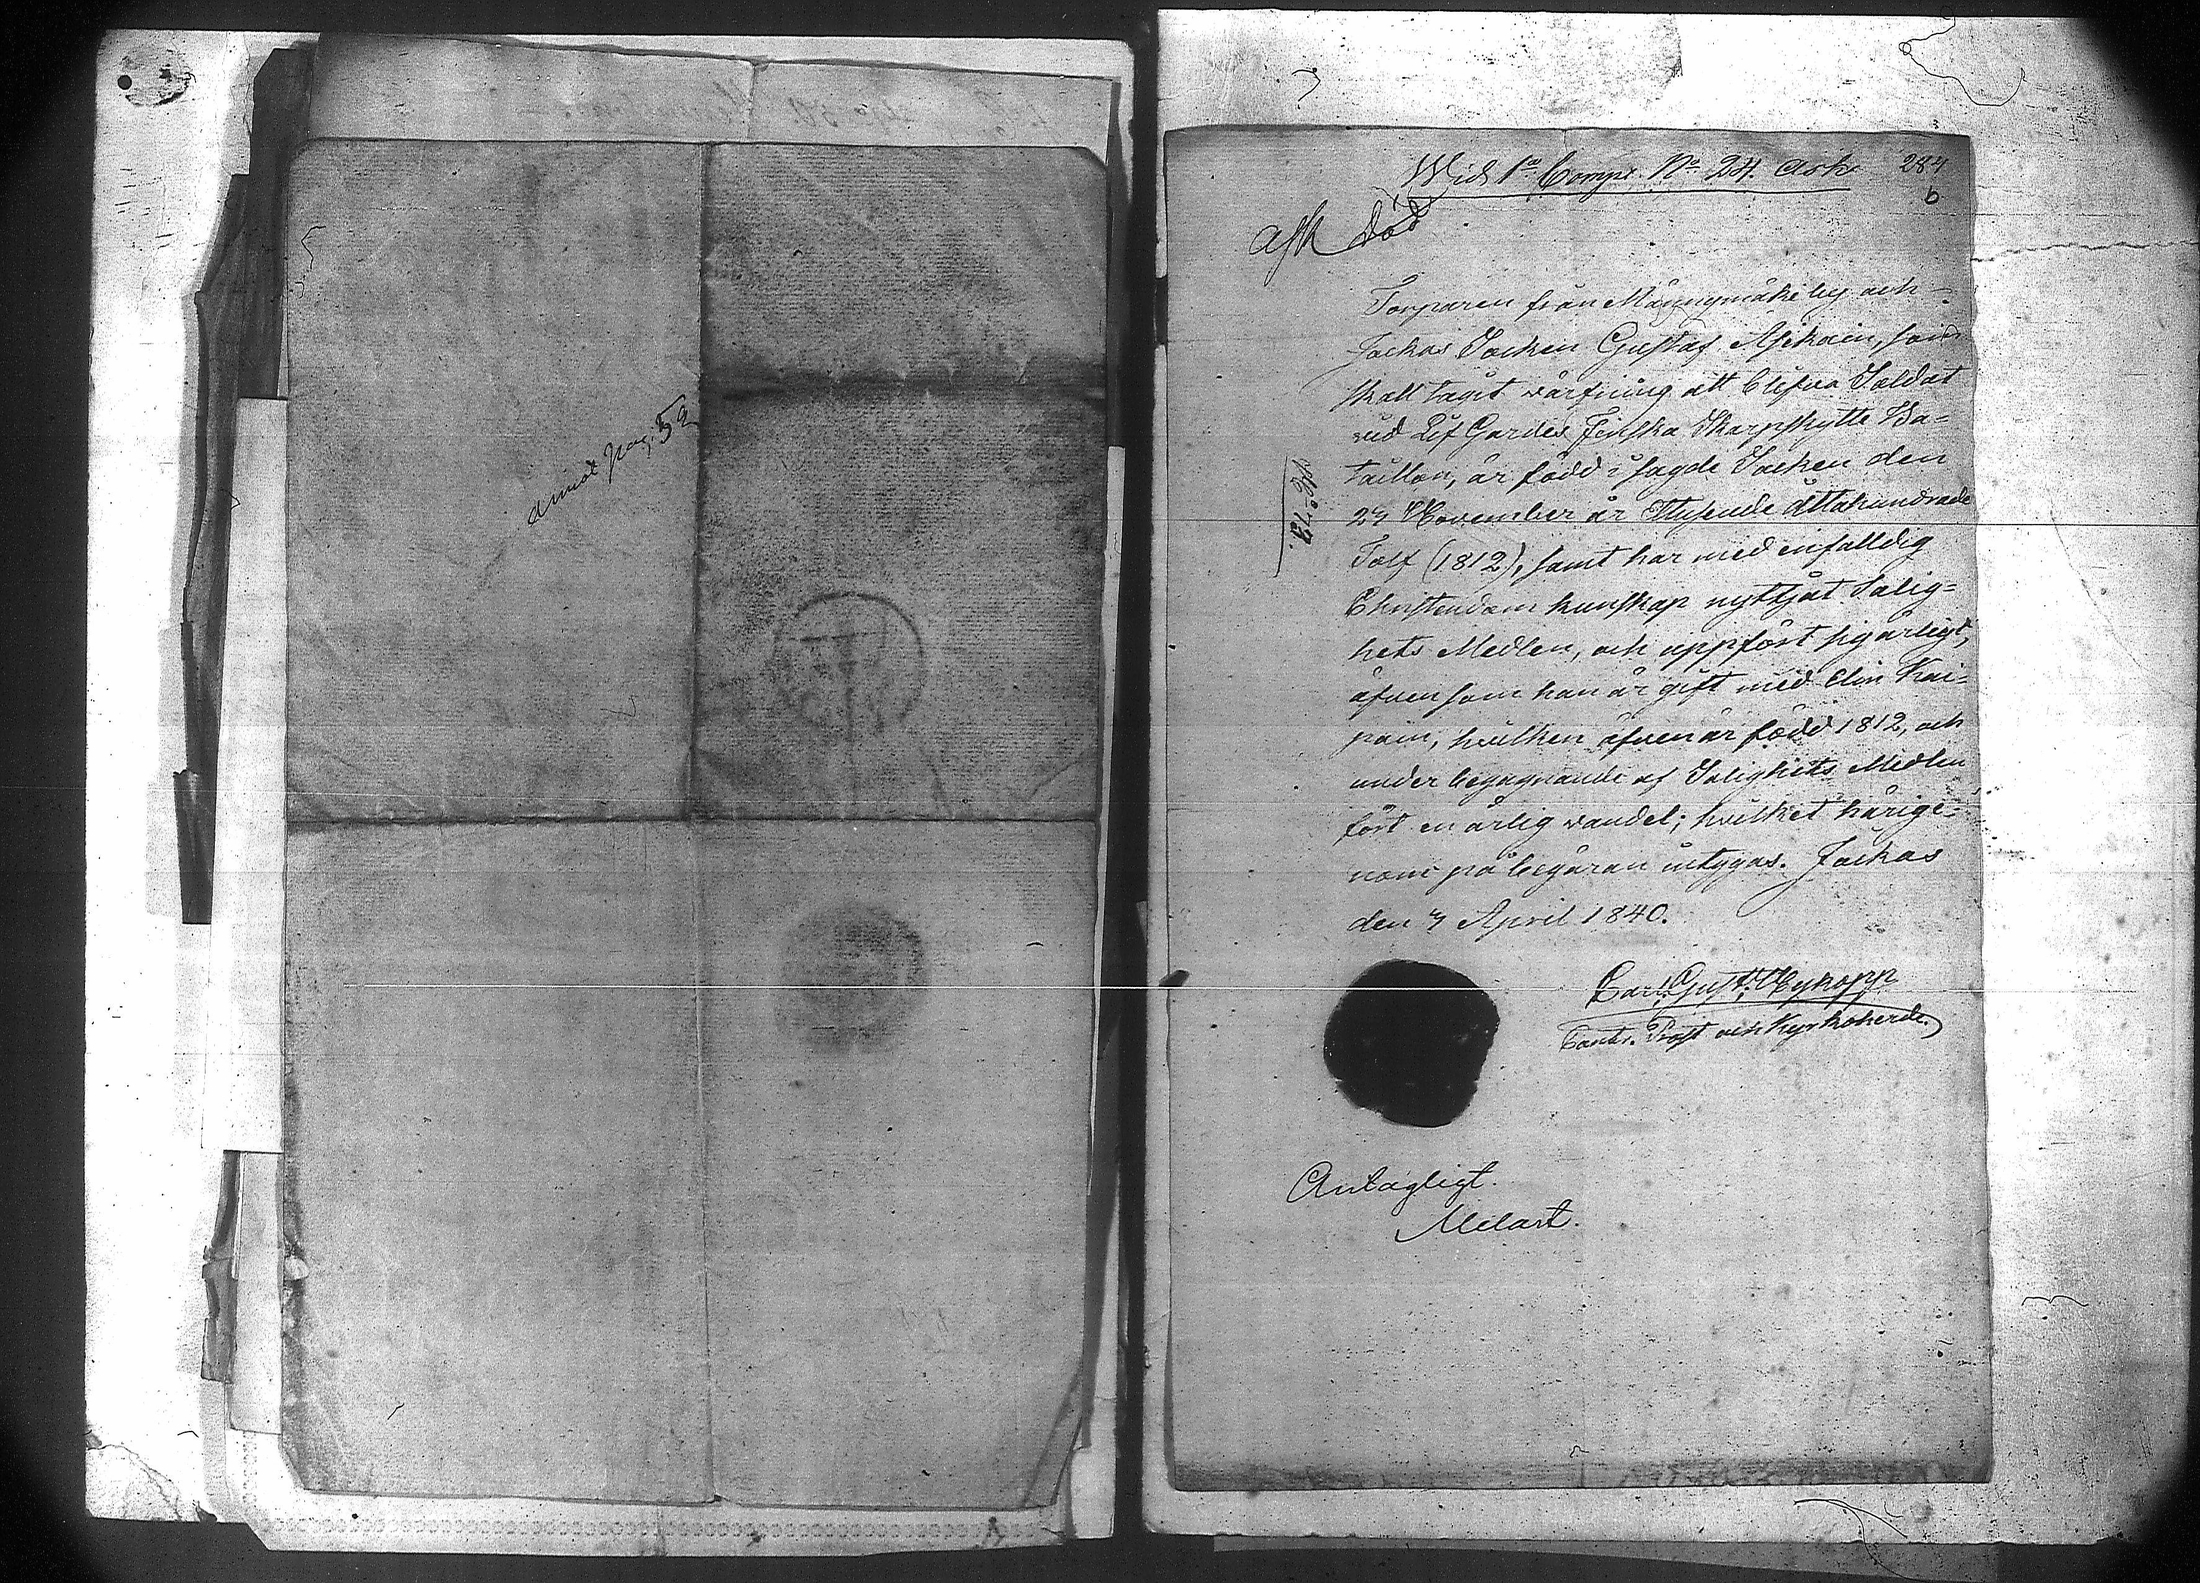 admiss pag. 52
Wid 1a Comp. No 24. Ask
287
b
Ask död
Torparen från Mäyrymäki by och
Jockas Socken Gustaf Asikain, som
skall tagit värfning att blifva Soldat
vid Lif Gardes Finska Skarpskytte Ba=
taillon, är född i sagde Socken den
27 November år Ettusende åttahundrade
Tolf (1812), samt har med enfaldig
Christendoms kunskap nyttjat Salig=
hets Medlen, och uppfört sig ärligt,
äfvensom han är gift med Elin Kai=
pain, hvilken äfven är född 1812, och
under begagnande af Salighets Medlen
fört en ärlig vandel; hvilket härige=
nom på begäran intygas. Jockas
den 7 April 1840.
Carl Gust. Wykopp
Contr. Prost och Kyrkoherde.
Antagligt.
Melart.